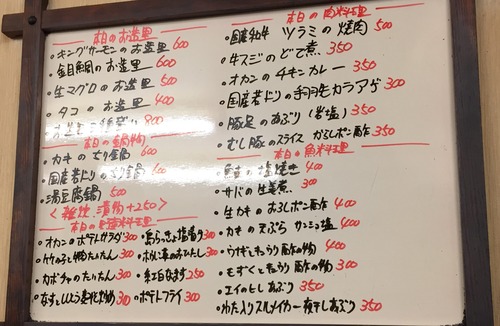 本日のお造里
・キングサーモンのお造里 600
・金目鯛のお造里 600
・生マグロのお造里 500
・タコのお造里 400
900
本日の鍋物
・カキのせり鍋 600
・国産若どりのせり鍋
・湯豆腐鍋 500
＜雑炊 漬物+250＞
本日の料理
・オカンのポテトサラダ 300
・竹の子と のたいたん 300
・カボチャのたいたん 300
・なすと 300
・島らっきょ塩漬り 300
・ほうれん草のおひたし 300
・紅白なます 250
・ポテトフライ 300
本日の肉料理
・国産和牛 ツラミの焼肉 500
・牛スジのどて煮 350
・オカンのチキンカレー 350
・国産若どりの手羽先カラアゲ 300
・豚足のあぶり（岩塩） 350
・むし豚のスライス からしポン酢 350
本日の魚料理
・ の塩焼き 400
・サバの生姜煮 300
・生カキのおろしポン酢 400
・カキの天ぷら 400
・ウナギときゅうり酢の物 400
・もずくときゅうり酢の物 300
・エイのヒレあぶり 350
・わた入りスルメイカ一夜干しあぶり 350